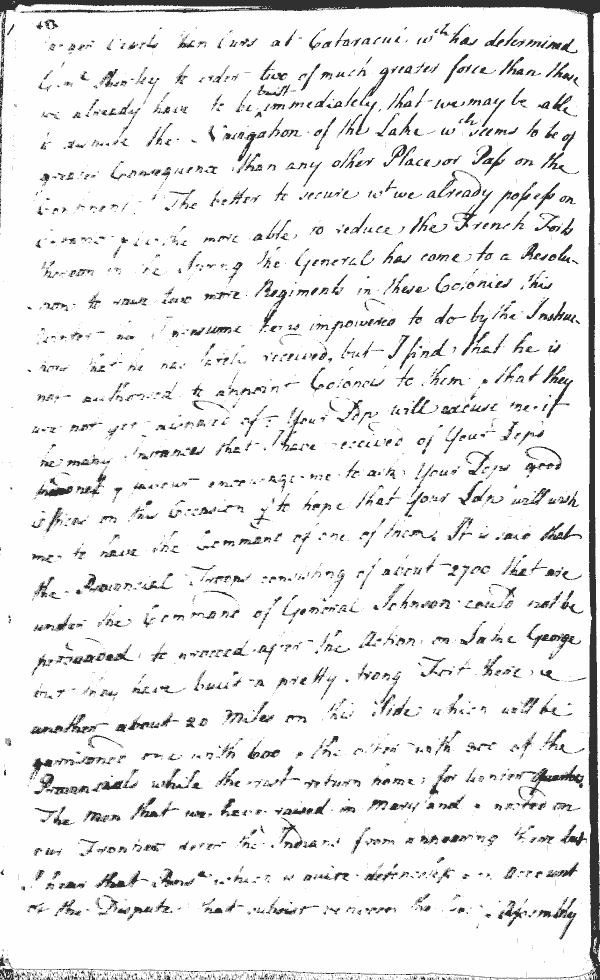 larger Vessels than Ours at Cataracui wch has determined
Genl Shirley to order two of much greater force than those
we already have to be built immediately, that we may be able
to dispute the Navigation of the Lake wch seems to be of
greater Consequence than any other Place or Pass on the
Continent. The better to secure wt we already possess on
be the more able to reduce the French Forts
thereon in the Spring the General has come to a Resolu-
-tion to raise two more Regiments in these Colonies this
Winter as I presume he is impowered to do by the Instruc-
-tions that he has lately received, but I find that he is
not authorised to appoint Colonels to them & that they
are not yet disposed of. Your Ldp will excuse me if
the many Instances that I have received of Your Ldps
& favour encourage me to ask Your Ldps good
Offices on this Occasion & to hope that Your Ldp will wish
me to have the Command of one of them. It is said that
the Provincial Troops consisting of about 2700 that are
under the Command of General Johnson could not be
persuaded to proceed after the Action on Lake George
but they have built a pretty strong Fort there &
another about 20 Miles on this Side which will be
garrisoned one with 600 & the other with 300 of the
Provincials while the rest return home for Winter Quarters.
The Men that we have raised in Maryland & posted on
our Frontier deter the Indians from appearing there but
I hear that Pensa which is quite defenceless on Account
of the Dispute that subsist between the Govr & Assembly